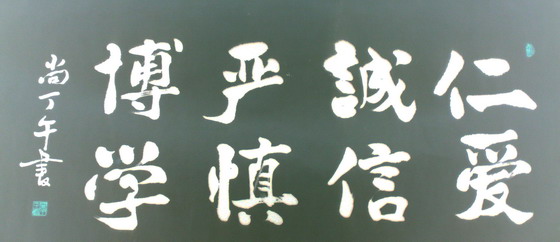 仁爱
誠信
严慎
博学
尚丁午書